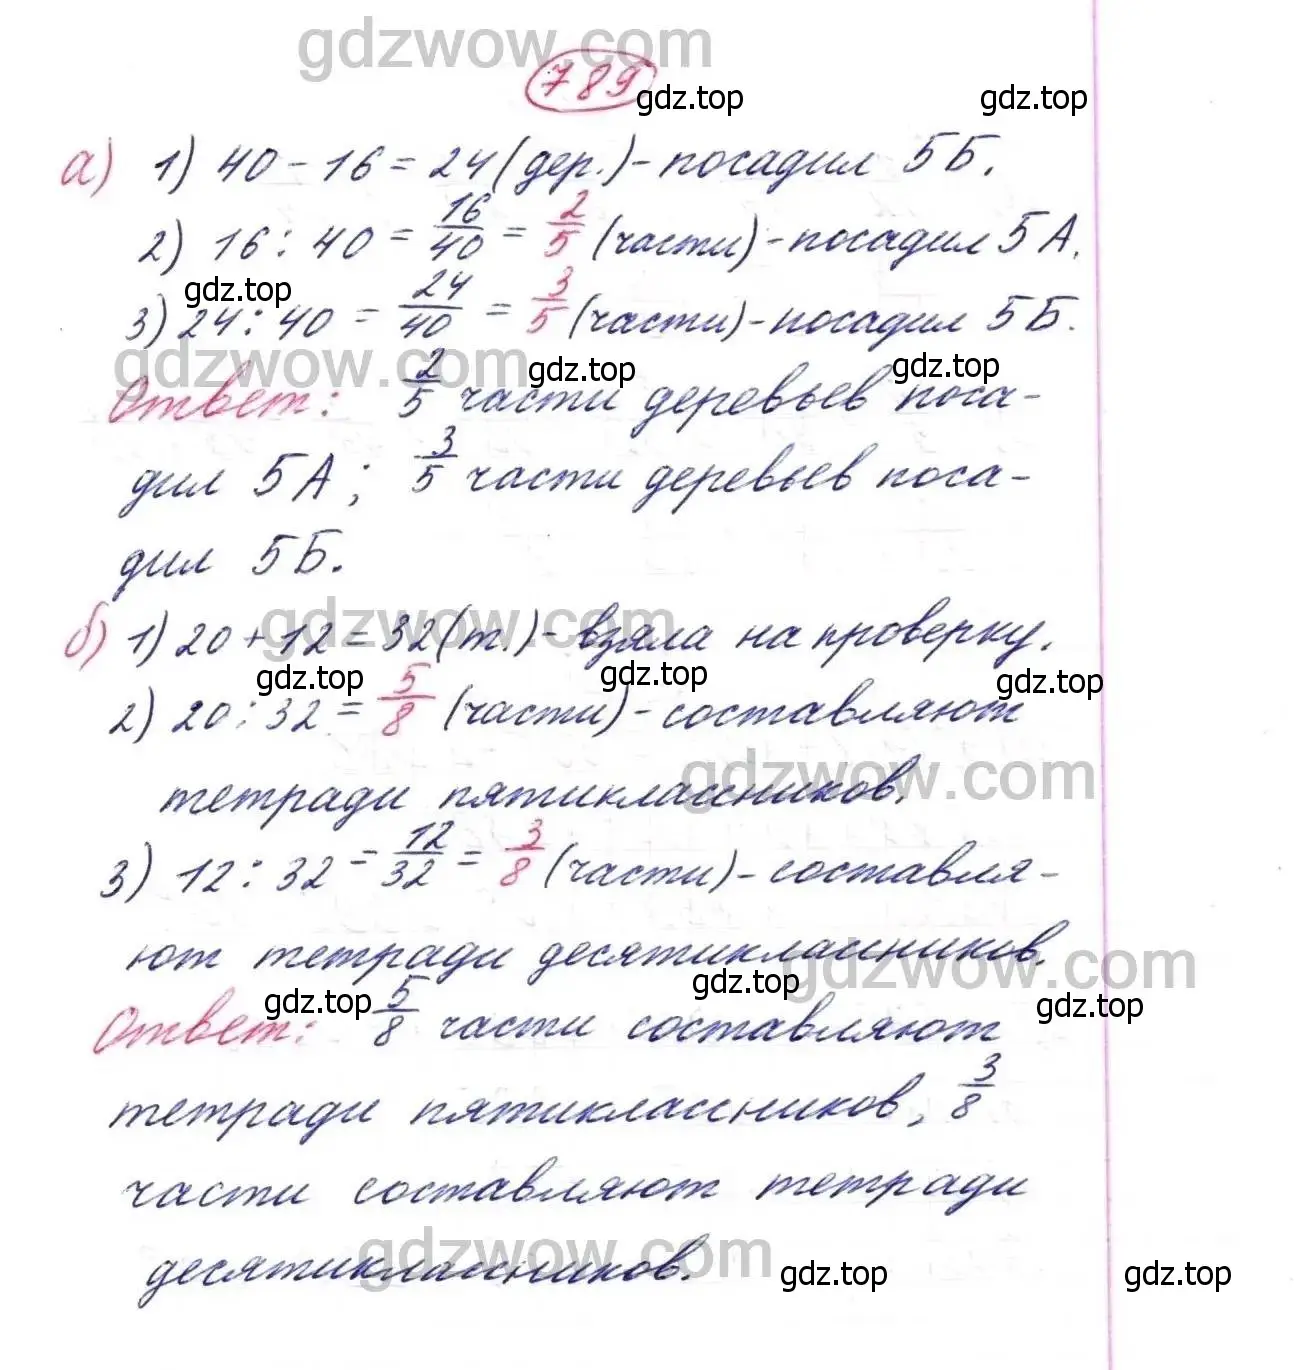 gdzwow.com
789
gdz.top gdz.top
а) 1) 40 - 16 = 24 (дер.) - посадил 5Б.
2) 16 : 40 = 16/40 = 2/5 (части) - посадил 5А.
gdz.top
3) 24 : 40 = 24/40 = 3/5 (части) - посадил 5Б.
gdzwow.com gdz.top gdz.top
Ответ: 2/5 части деревьев поса-
дил 5А; 3/5 части деревьев поса-
дил 5Б.
gdzwow.com
б) 1) 20 + 12 = 32 (т.) - взяла на проверку.
gdz.top gdz.top gdz.top
2) 20 : 32 = 5/8 (части) - составляют
gdzwow.com
тетради пятиклассников.
3) 12 : 32 = 12/32 = 3/8 (части) - составля-
ют тетради десятиклассников.
gdzwow.com
gdz.top gdz.top gdz.top
Ответ: 5/8 части составляют
тетради пятиклассников, 3/8
части составляют тетради
gdzwow.com
десятиклассников.
gdz.top gdz.top